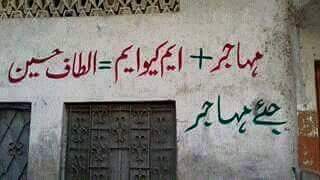 مہاجر + ایم کیو ایم = الطاف حسین
جئے مہاجر